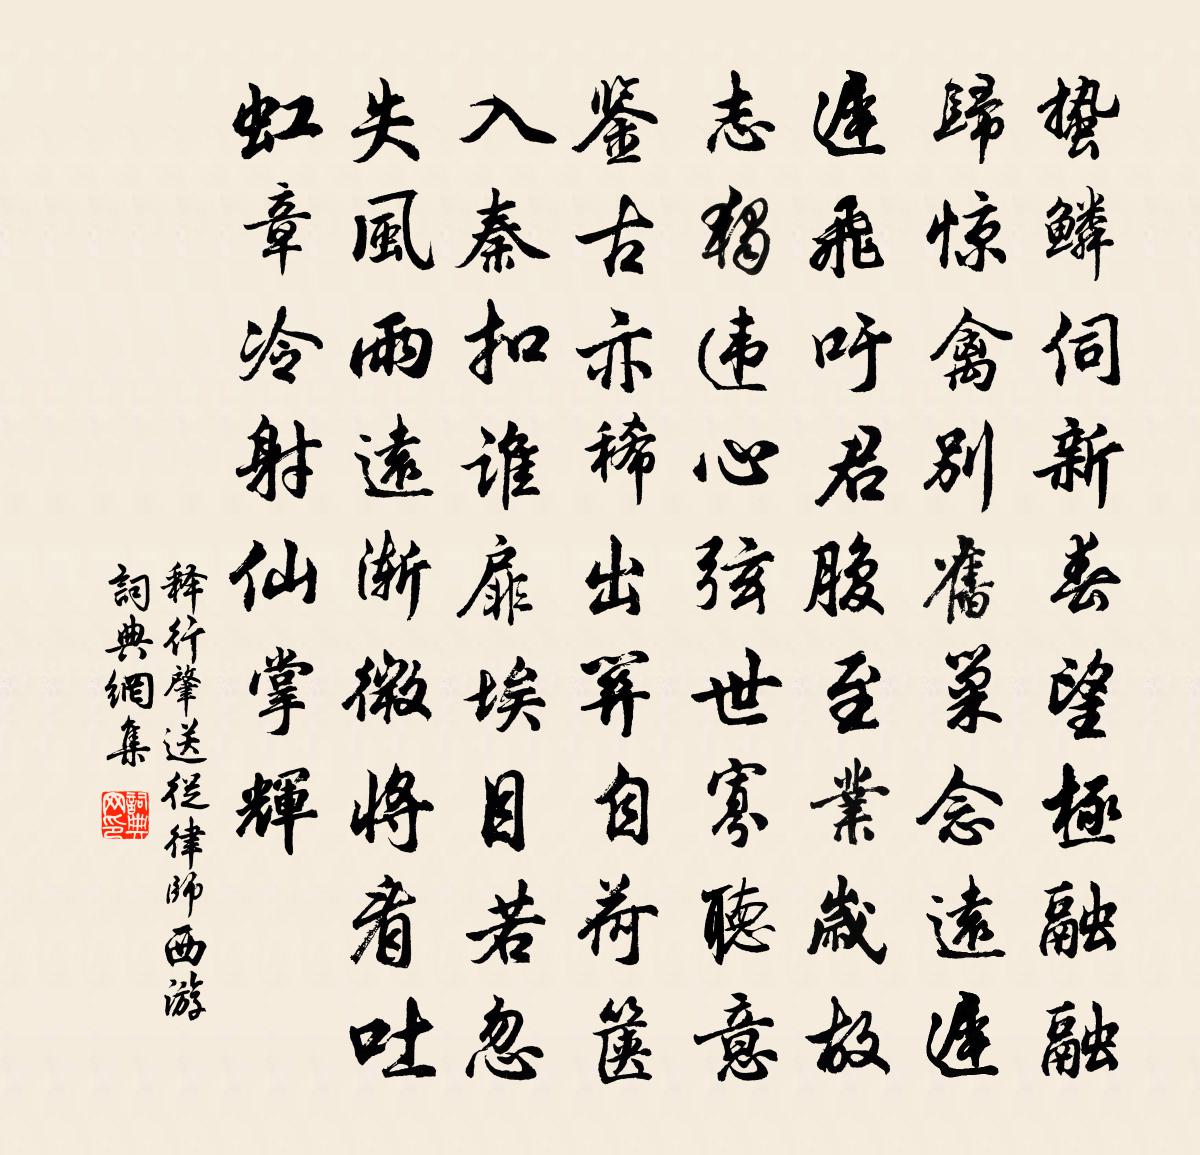 蛰鱗伺新春望極融融
歸惊禽別舊巢念遠遲
遲飛吁君腹至業歲故
志獨违心弦世寡聽意
鉴古亦稀出笄自荷箧
入秦扣谁扉埃目若忽
失風雨遠漸微將看吐
虹章冷射仙掌輝
释行肇送從律師西游
詞典網集
詞典网印